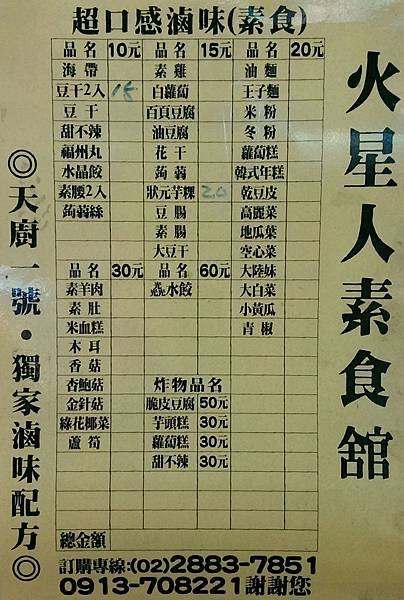 超口感滷味(素食)
品名 10元 品名 15元 品名 20元
海帶 素雞 油麵
豆干2入 15 白蘿蔔 王子麵
豆干 百頁豆腐 米粉
甜不辣 油豆腐 冬粉
福州丸 花干 蘿蔔糕
水晶餃 蒟蒻 韓式年糕
素腰2入 狀元芋粿 20 乾豆皮
蒟蒻絲 豆腸 高麗菜
素腸 地瓜葉
大豆干 空心菜
品名 30元 品名 60元 大陸妹
素羊肉 水餃 大白菜
素肚 小黃瓜
米血糕 青椒
木耳
香菇
杏鮑菇 炸物品名
金針菇 脆皮豆腐 50元
綠花椰菜 芋頭糕 30元
蘆筍 蘿蔔糕 30元
甜不辣 30元
總金額
訂購專線:(02)2883-7851
0913-708221謝謝您
火星人素食舘
◎天廚一號・獨家滷味配方◎